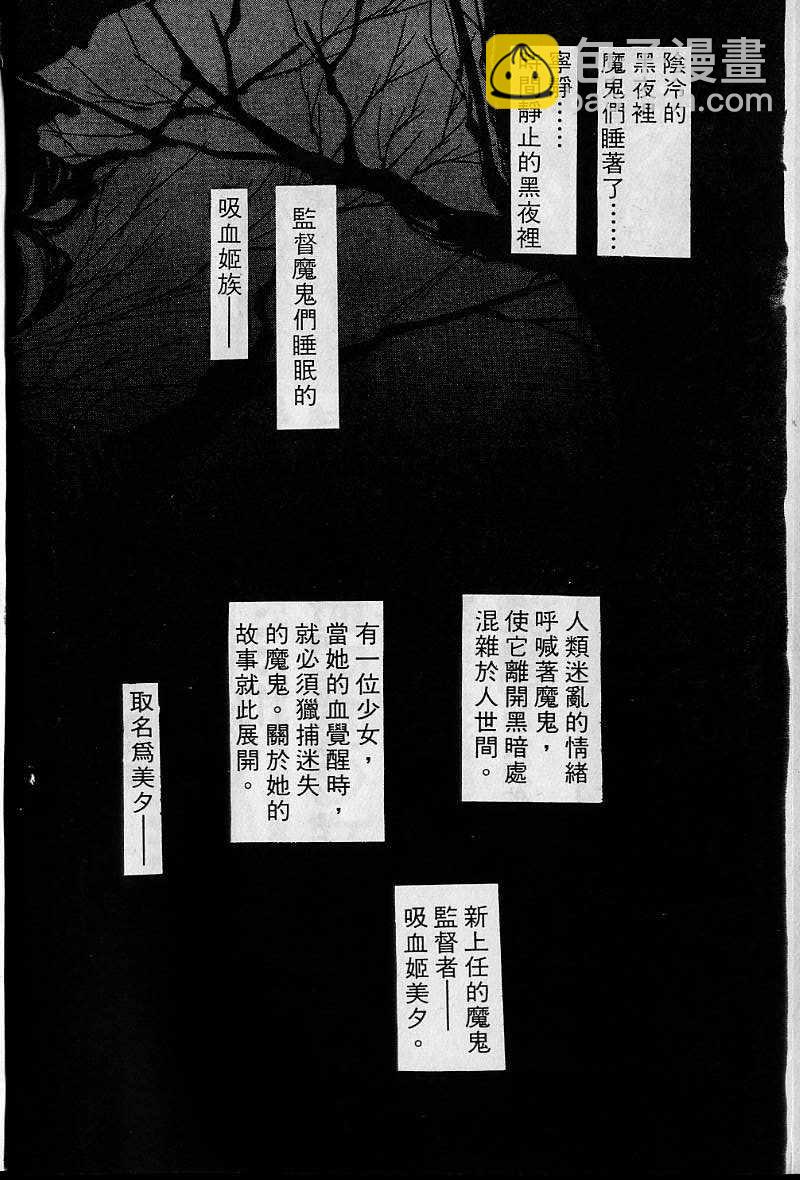 陰冷的
黑夜裡
魔鬼們睡著了……
寧靜……
時間靜止的黑夜裡
監督魔鬼們睡眠的
吸血姬族——
人類迷亂的情緒
呼喊著魔鬼，
使它離開黑暗處
混雜於人世間。
有一位少女，
當她的血覺醒時，
就必須獵捕迷失
的魔鬼。關於她的
故事就此展開。
取名爲美夕——
新上任的魔鬼
監督者——
吸血姬美夕。
包子漫畫